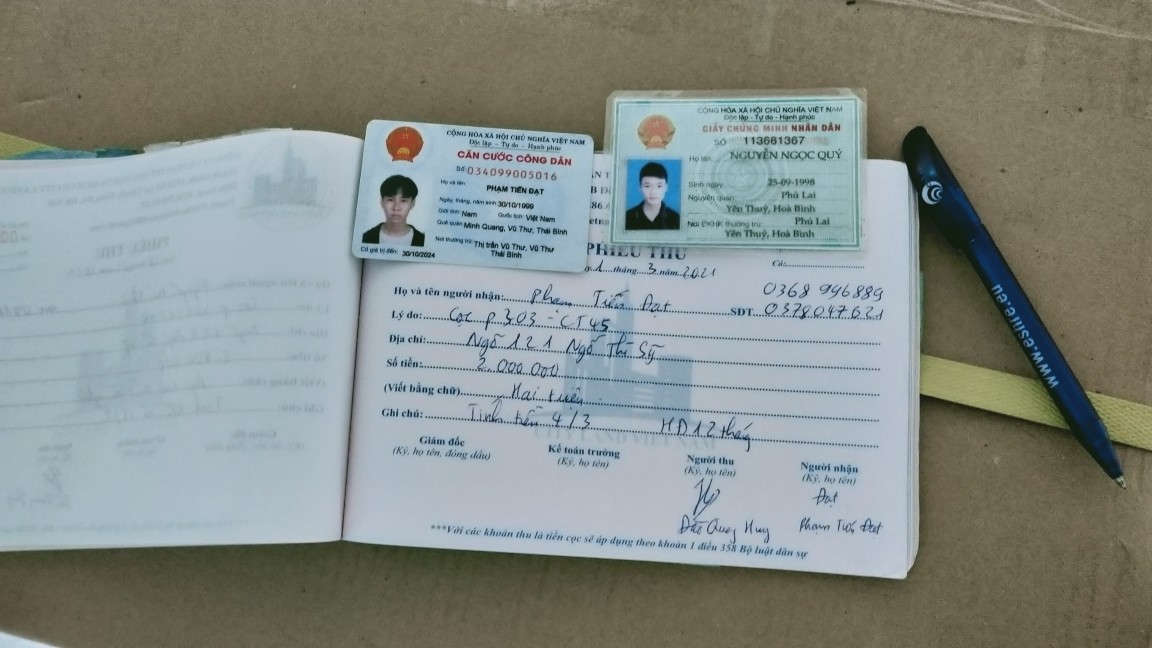 CỘNG HÒA XÃ HỘI CHỦ NGHĨA VIỆT NAM
Độc lập - Tự do - Hạnh phúc
CĂN CƯỚC CÔNG DÂN
Số 034099005016
Họ và tên:
PHẠM TIẾN ĐẠT
Ngày, tháng, năm sinh: 30/10/1999
Giới tính: Nam Quốc tịch: Việt Nam
Quê quán: Minh Quang, Vũ Thư, Thái Bình
Nơi thường trú: Thị trấn Vũ Thư, Vũ Thư
Thái Bình
Có giá trị đến: 30/10/2024
CỘNG HÒA XÃ HỘI CHỦ NGHĨA VIỆT NAM
Độc lập - Tự do - Hạnh phúc
GIẤY CHỨNG MINH NHÂN DÂN
SỐ 113681367
Họ tên: NGUYỄN NGỌC QUÝ
Sinh ngày: 25-09-1998
Nguyên quán: Phú Lai
Yên Thuỷ, Hoà Bình
Nơi ĐKHK thường trú: Phú Lai
Yên Thuỷ, Hoà Bình
PHIẾU THU
1 tháng 3 năm 2021
0368 996889
Họ và tên người nhận: Phạm Tiến Đạt SĐT 0378047621
Lý do: Cọc p 303 - CT45
Địa chỉ: Ngõ 121 Ngô Thì Sỹ
Số tiền: 2.000.000
(Viết bằng chữ) Hai triệu
Ghi chú: Tính tiền 4/3 HĐ 12 tháng
CITY LAND VIỆT NAM
Giám đốc Kế toán trưởng Người thu Người nhận
(Ký, họ tên, đóng dấu) (Ký, họ tên) (Ký, họ tên) (Ký, họ tên)
Đạt
Quang Huy Phạm Tiến Đạt
***Với các khoản thu là tiền cọc sẽ áp dụng theo khoản 1 điều 358 Bộ luật dân sự
www.eshre.eu